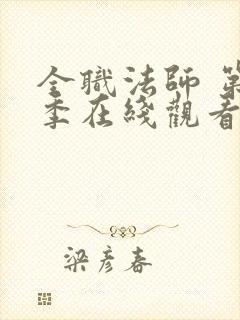 全職法師 第
季在綫觀看
梁彥春